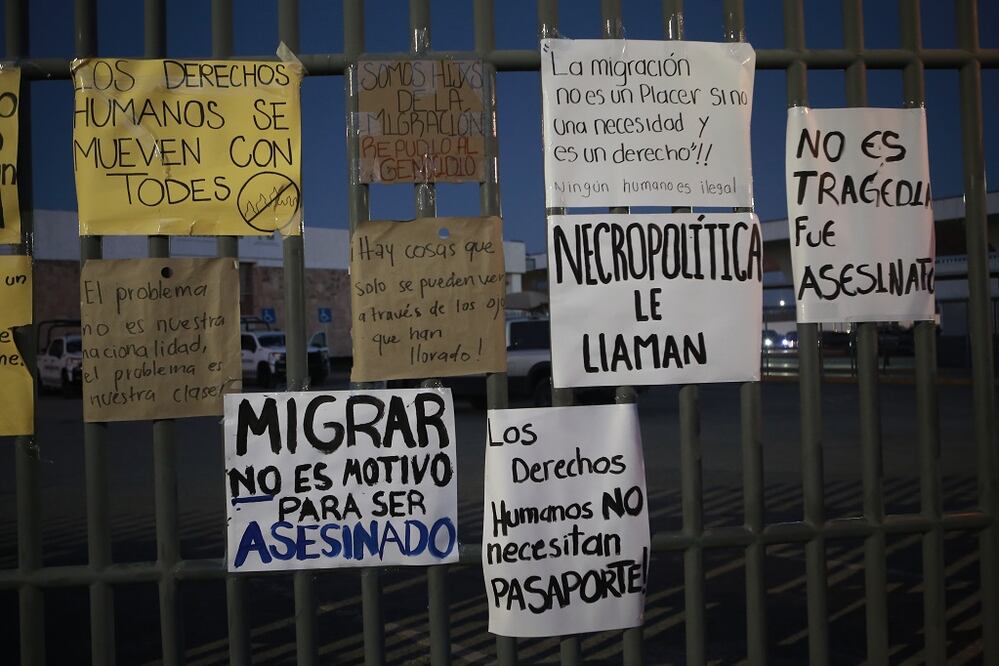 LOS DERECHOS
HUMANOS SE
MUEVEN CON
TODES
SOMOS HIJXS
DE LA
MIGRACIÓN
REPUDIO AL
GENOCIDIO
"La migración
no es un Placer Sino
una necesidad y
es un derecho"!!
Ningún humano es ilegal
NO ES
TRAGEDIA
FUE
ASESINATO
El problema
no es nuestra
nacionalidad,
el problema es
nuestra clase!
Hay cosas que
solo se pueden ver
a través de los ojos
que han
llorado!
NECROPOLÍTICA
LE
LLAMAN
MIGRAR
NO ES MOTIVO
PARA SER
ASESINADO
Los
Derechos
Humanos NO
necesitan
PASAPORTE!
un